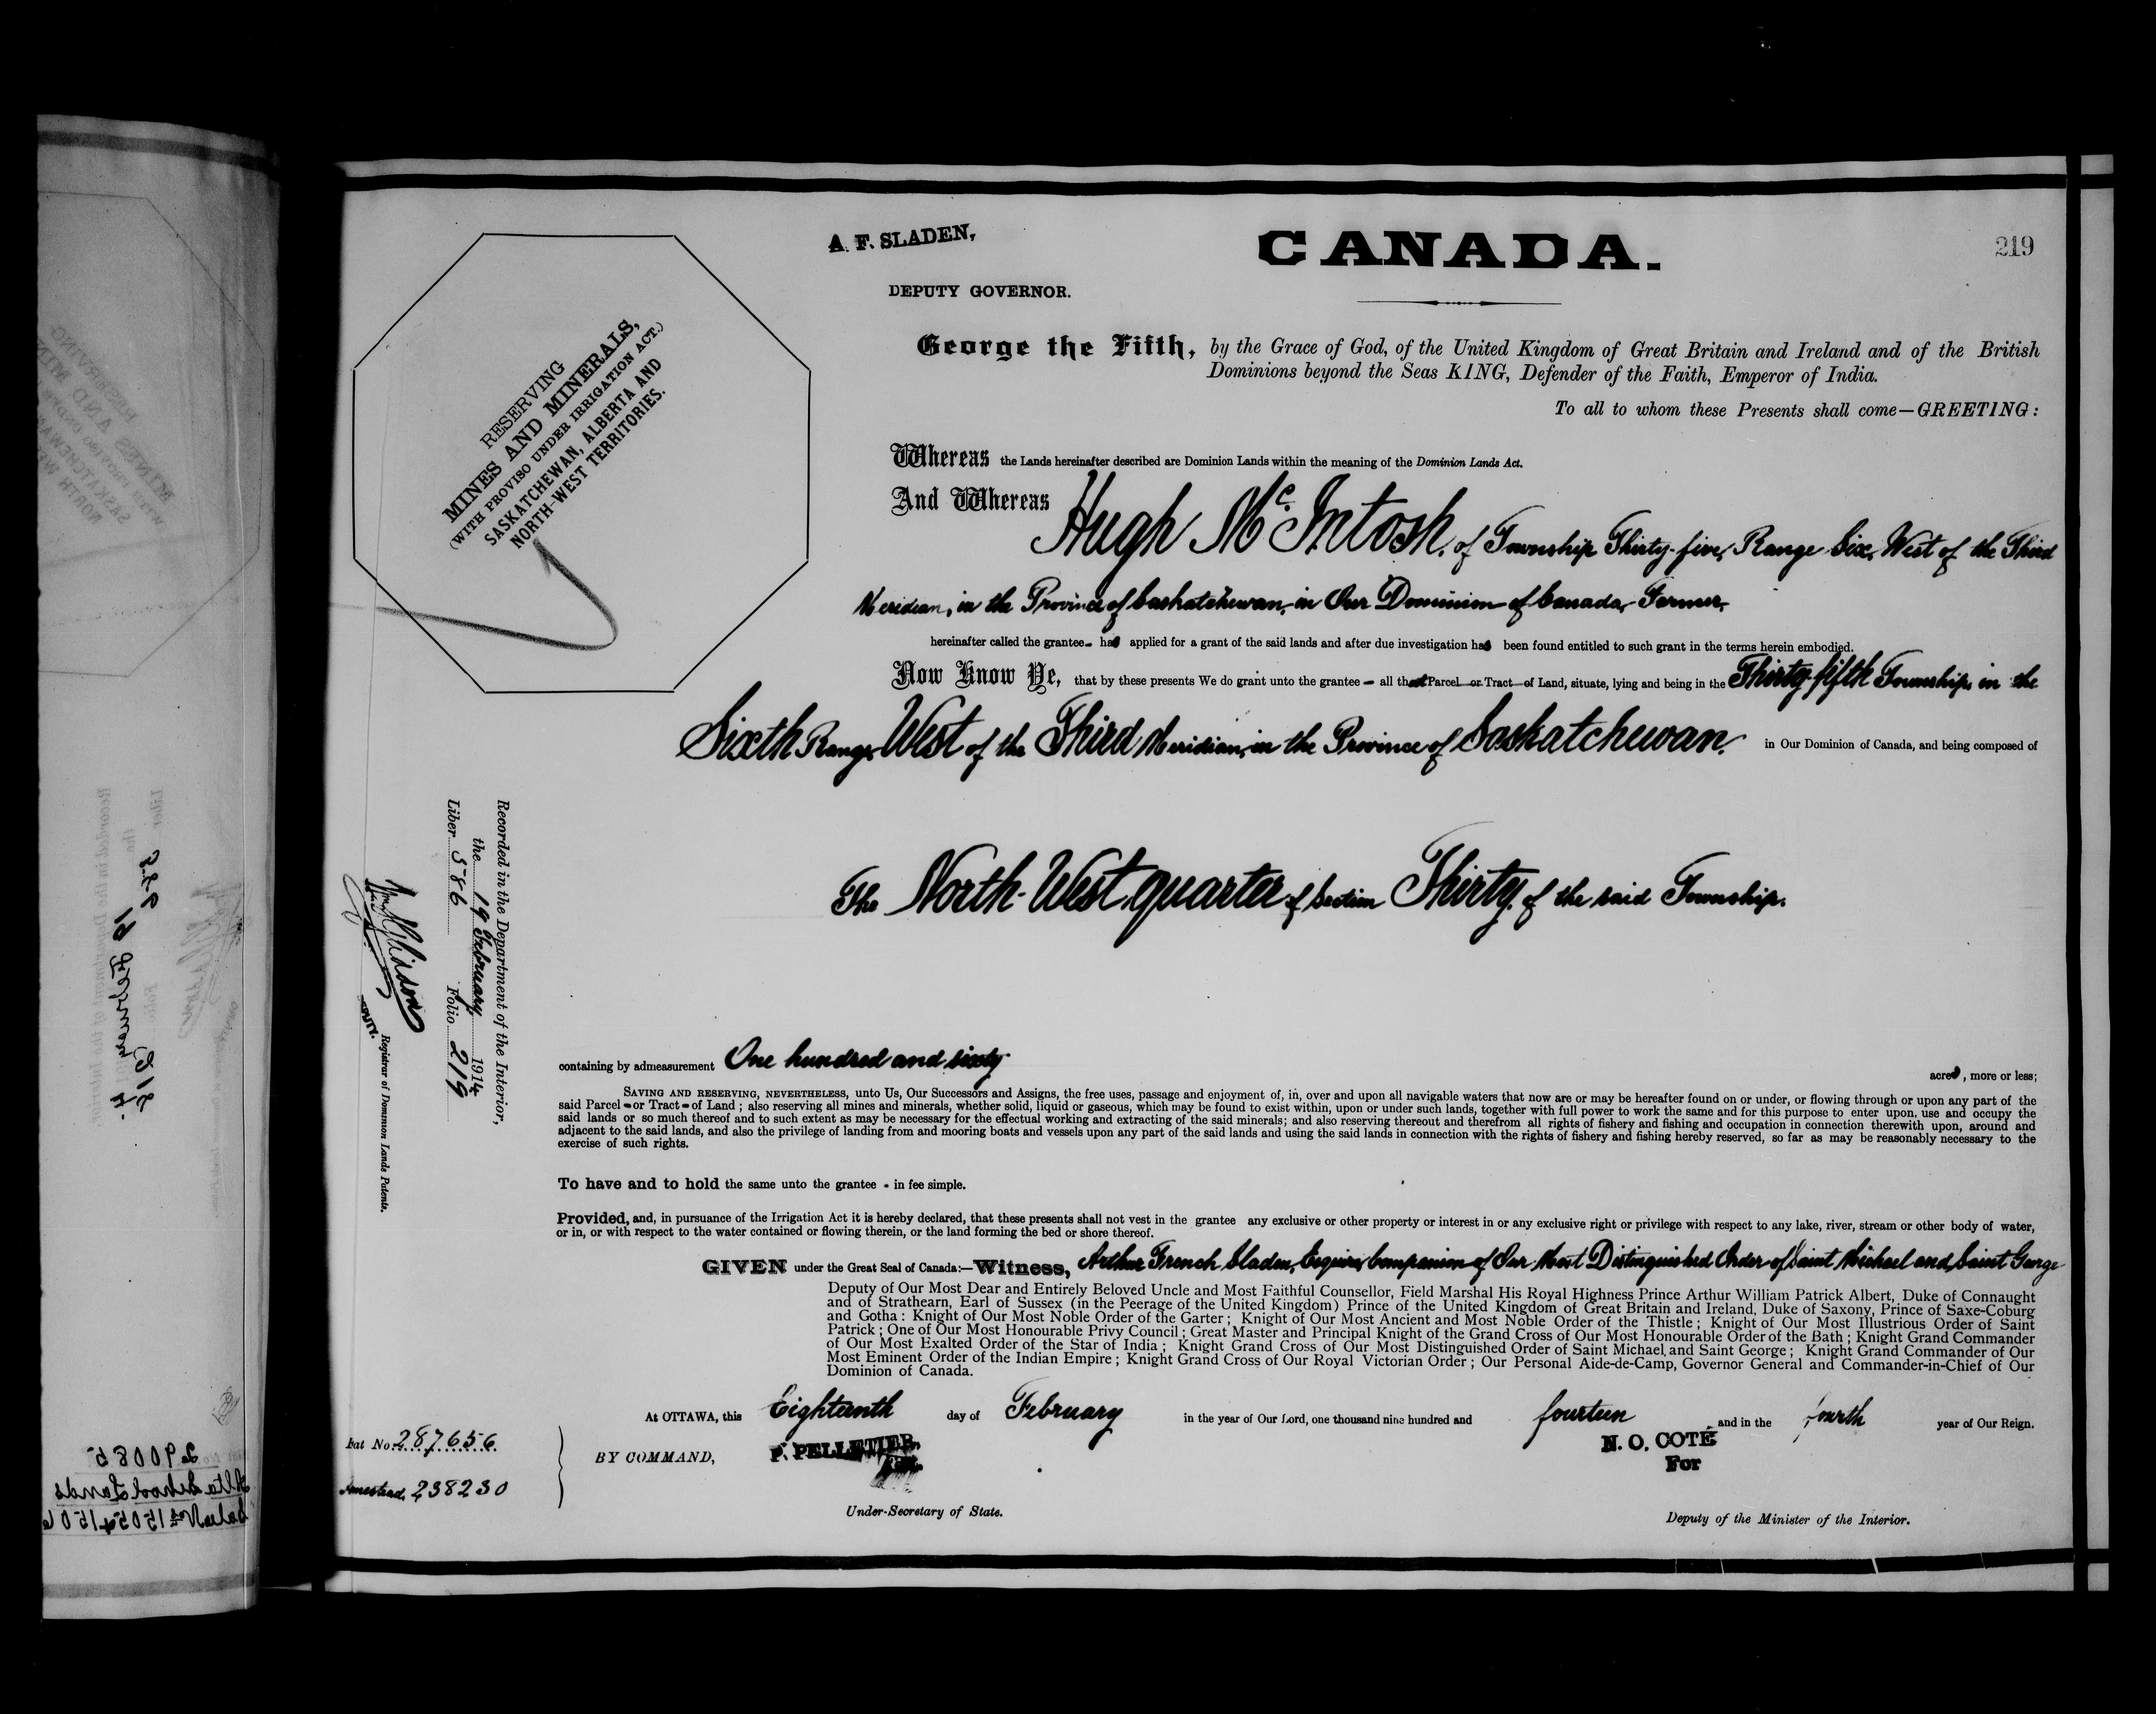 A. F. SLADEN,
DEPUTY GOVERNOR.
CANADA.
219
RESERVING
MINES AND MINERALS,
(WITH PROVISO UNDER IRRIGATION ACT.)
SASKATCHEWAN, ALBERTA AND
NORTH-WEST TERRITORIES.
George the Fifth, by the Grace of God, of the United Kingdom of Great Britain and Ireland and of the British
Dominions beyond the Seas KING, Defender of the Faith, Emperor of India.
To all to whom these Presents shall come—GREETING:
Whereas the Lands hereinafter described are Dominion Lands within the meaning of the Dominion Lands Act.
And Whereas Hugh McIntosh, of Township Thirty-five, Range Six, West of the Third
Meridian, in the Province of Saskatchewan, in Our Dominion of Canada, Farmer,
hereinafter called the grantee - has applied for a grant of the said lands and after due investigation has been found entitled to such grant in the terms herein embodied.
Now Know Ye, that by these presents We do grant unto the grantee - all that Parcel or Tract of Land, situate, lying and being in the Thirty-fifth Township, in the
Sixth Range, West of the Third Meridian, in the Province of Saskatchewan, in Our Dominion of Canada, and being composed of
The North-West quarter of Section Thirty, of the said Township.
Recorded in the Department of the Interior,
the 19 February 1914
Liber 586 Folio 219
Registrar of Dominion Lands Patents.
containing by admeasurement One hundred and sixty acres, more or less;
SAVING AND RESERVING, NEVERTHELESS, unto Us, Our Successors and Assigns, the free uses, passage and enjoyment of, in, over and upon all navigable waters that now are or may be hereafter found on or under, or flowing through or upon any part of the
said Parcel - or Tract - of Land; also reserving all mines and minerals, whether solid, liquid or gaseous, which may be found to exist within, upon or under such lands, together with full power to work the same and for this purpose to enter upon, use and occupy the
said lands or so much thereof and to such extent as may be necessary for the effectual working and extracting of the said minerals; and also reserving thereout and therefrom all rights of fishery and fishing and occupation in connection therewith upon, around and
adjacent to the said lands, and also the privilege of landing from and mooring boats and vessels upon any part of the said lands and using the said lands in connection with the rights of fishery and fishing hereby reserved, so far as may be reasonably necessary to the
exercise of such rights.
To have and to hold the same unto the grantee - in fee simple.
Provided, and, in pursuance of the Irrigation Act it is hereby declared, that these presents shall not vest in the grantee any exclusive or other property or interest in or any exclusive right or privilege with respect to any lake, river, stream or other body of water,
or in, or with respect to the water contained or flowing therein, or the land forming the bed or shore thereof.
GIVEN under the Great Seal of Canada:—Witness, Arthur French Sladen, Esquire, Companion of Our Most Distinguished Order of Saint Michael and Saint George
Deputy of Our Most Dear and Entirely Beloved Uncle and Most Faithful Counsellor, Field Marshal His Royal Highness Prince Arthur William Patrick Albert, Duke of Connaught
and of Strathearn, Earl of Sussex (in the Peerage of the United Kingdom) Prince of the United Kingdom of Great Britain and Ireland, Duke of Saxony, Prince of Saxe-Coburg
and Gotha: Knight of Our Most Noble Order of the Garter; Knight of Our Most Ancient and Most Noble Order of the Thistle; Knight of Our Most Illustrious Order of Saint
Patrick; One of Our Most Honourable Privy Council; Great Master and Principal Knight of the Grand Cross of Our Most Honourable Order of the Bath; Knight Grand Commander
of Our Most Exalted Order of the Star of India; Knight Grand Cross of Our Most Distinguished Order of Saint Michael and Saint George; Knight Grand Commander of Our
Most Eminent Order of the Indian Empire; Knight Grand Cross of Our Royal Victorian Order; Our Personal Aide-de-Camp, Governor General and Commander-in-Chief of Our
Dominion of Canada.
At OTTAWA, this Eighteenth day of February in the year of Our Lord, one thousand nine hundred and fourteen and in the fourth year of Our Reign.
Pat No. 287656
Homestead. 238230
BY COMMAND,
P. PELLETIER,
Under-Secretary of State.
N. O. COTÉ
For
Deputy of the Minister of the Interior.